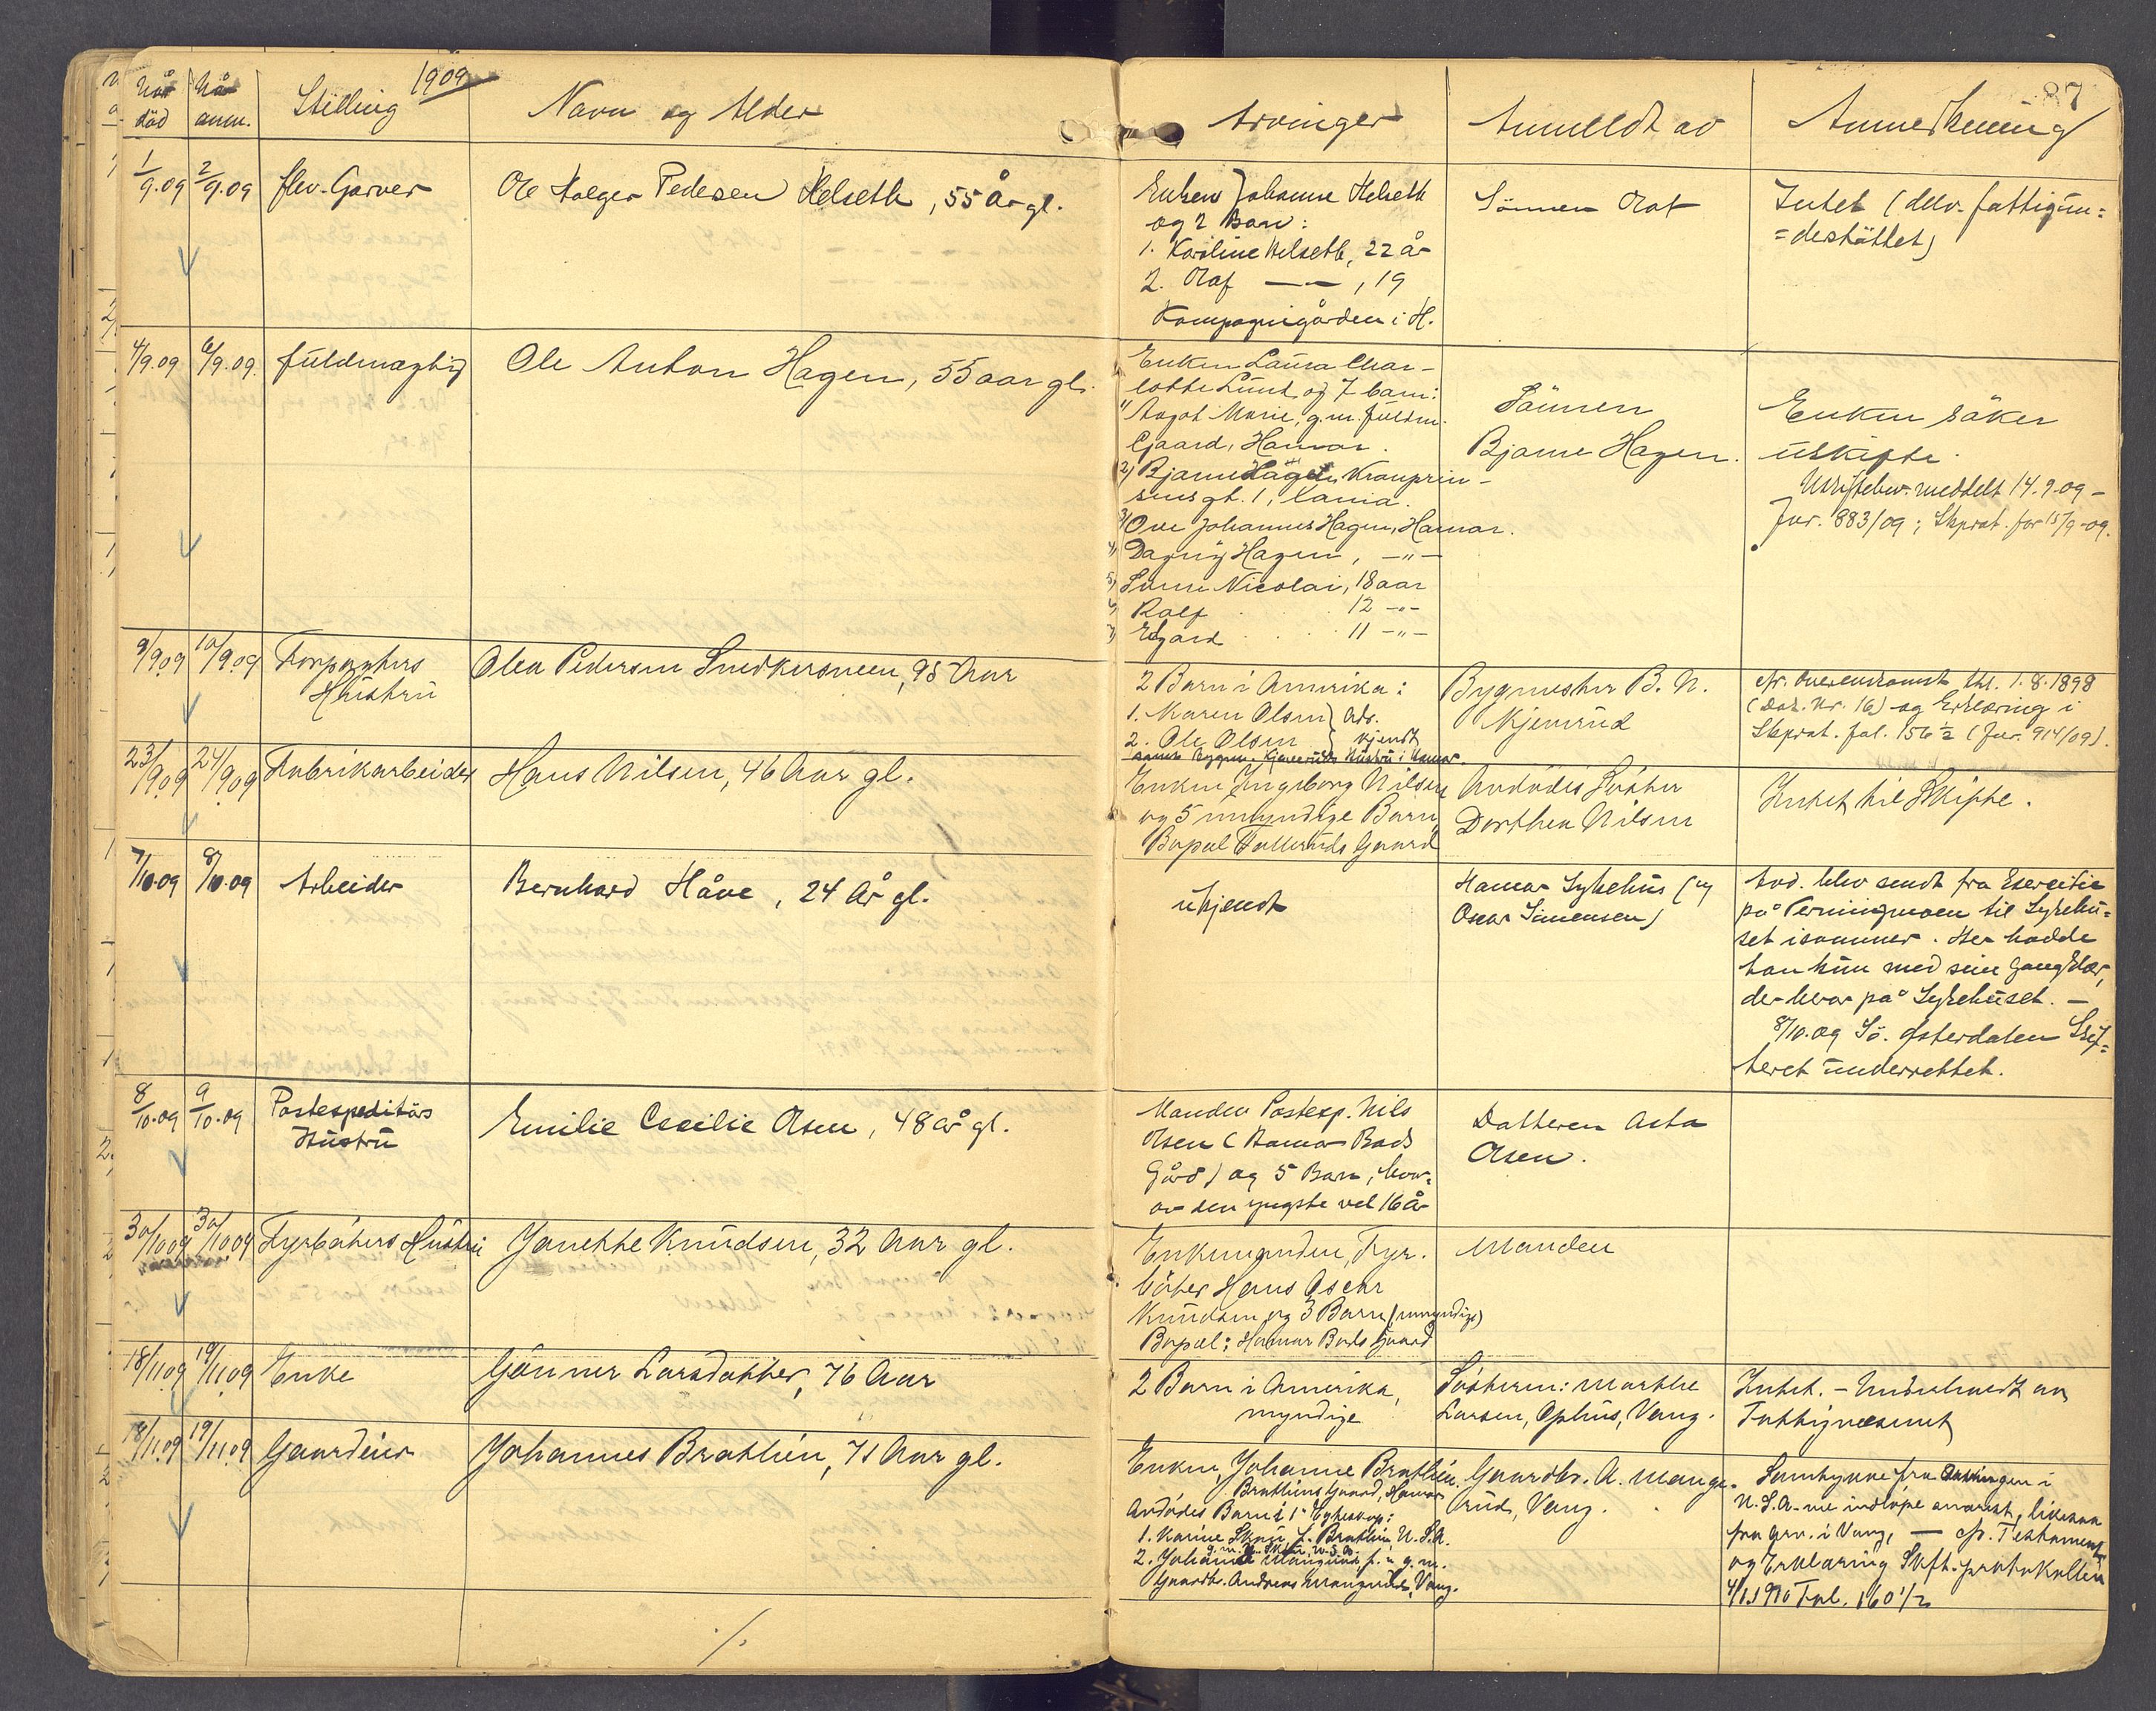 1909
87
Når död
Når anm.
Stilling
Navn og Alder
Arvinger
Anmeldt av
Anmerkning
1/9.09 2/9.09 flev. Garver
Ole Holger Pedersen Helseth, 55 År gl.
Enken Johanne Helseth
og 2 Barn:
1. Karoline Helseth, 22 år
2. Olaf —"—, 19
Kompagnigården i H.
Sönnen Olaf
Intet (delv. fattigun=
=derstöttet)
4/9.09 6/9.09. fuldmægtig
Ole Anton Hagen, 55 aar gl.
Enken Laura Char-
lotte Lund og 7 barn:
1) Aagot Marie, g.m. fuldm.
Gaard, Hamar.
2) Bjarne Hagen Kronprin-
sensgt. 1, Kania.
3) Ove Johannes Hagen, Hamar.
4) Dagny Hagen, —"—
5) Nicolai, 18 aar
6) Rolf 12 —"—
7) Edgard 11 —"—
Sönnen
Bjarne Hagen.
Enken söker
uskifte.
meddelt 14.9.09 -
Jur. 883/09; Skprot. for 15/9-09.
9/9.09 10/9.09
Hustru
Olea Pedersen Snedkersveen, 95 Aar
2 Barn i Amerika:
1. Karen Olsen } Ads.
2. Ole Olsen } kjendt
samt Bygm. Kjemeruds Hustru i Hamar.
Bygmester B. N.
Kjemrud
cfr. Overenskomst tll. 1.8.1898
(Dok. Nr. 16) og Erklæring i
Skprot. fol. 156 ½ (Jur. 914/09).
23/9.09 24/9.09 Fabrikarbeider
Hans Nilsen, 46 Aar gl.
Enken Ingeborg Nilsen
og 5 umyndige Barn
Bopæl Gaard
Avdödes Söster
Dorthea Nilsen
Intet til Skifte.
7/10.09 8/10.09 Arbeider
Bernhard Håve, 24 År gl.
ukjendt
Hamar Sykehus (v/
Oscar Simensen)
Avd. blev sendt fra Exercitie
på Terningmoen til Sykehu=
set isommer. Her hadde
han kun med sine Gangklær,
der beror på Sykehuset. —
8/10.09 Sö. Østerdalen Skif=
teret underrettet.
8/10.09 9/10.09 Postexpeditörs
Hustru
Emilie Cecilie Olsen, 48 år gl.
Manden Postexp. Nils
Olsen (Hamar Bads
Gård) og 5 Barn, hvor-
av den yngste vel 16 år
Datteren Asta
Olsen.
30/10 09 30/10 09 Fyrböters Hustru
Janette Knudsen, 32 Aar gl.
Enkemanden, Fyr-
böter Hans Oscar
Knudsen og 3 Barn (umyndige)
Bopæl: Hamar Bads Gaard
Manden
18/11 09 19/11 09 Enke
Gönner Larsdatter, 76 Aar
2 Barn i Amerika,
myndige
Sösteren: Marthe
Larsen, Ophus, Vang.
Intet. - Underholdt av
Fattigvæsenet
18/11.09 19/11 09 Gaardeier
Johannes Brathlien, 71 Aar gl.
Enken Johanne Brathlien,
Brathliens Gaard, Hamar
Avdödes Barn i 1ste Egteskap:
1. Karine f. Brathlien, U.S.A.
2. Johanne Mangerud f. " g.m.
Gaardbr. Andreas Mangerud, Vang.
Gaardbr. A. Mange-
rud, Vang.
Samtykke fra Datteren i
U.S.A. vil indlöpe snarest, likesaa
fra i Vang, — cfr. Testament
og Erklæring Skft.protokollen
4/1 1910 Fol. 160 1/2
./.